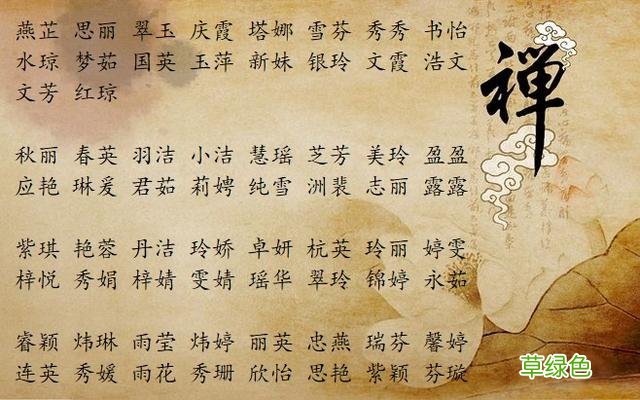 燕芷 思丽 翠玉 庆霞 塔娜 雪芬 秀秀 书怡
水琼 梦茹 国英 玉萍 新妹 银玲 文霞 浩文
文芳 红琼
秋丽 春英 羽洁 小洁 慧瑶 芝芳 美玲 盈盈
应艳 琳爰 君茹 莉娉 纯雪 洲裴 志丽 露露
紫琪 艳蓉 丹洁 玲娇 卓妍 杭英 玲丽 婷雯
梓悦 秀娟 梓婧 雯婧 瑶华 翠玲 锦婷 永茹
睿颖 炜琳 雨莹 炜婷 丽英 忠燕 瑞芬 馨婷
连英 秀媛 雨花 秀珊 欣怡 思艳 紫颖 芬璇
禅
草绿色